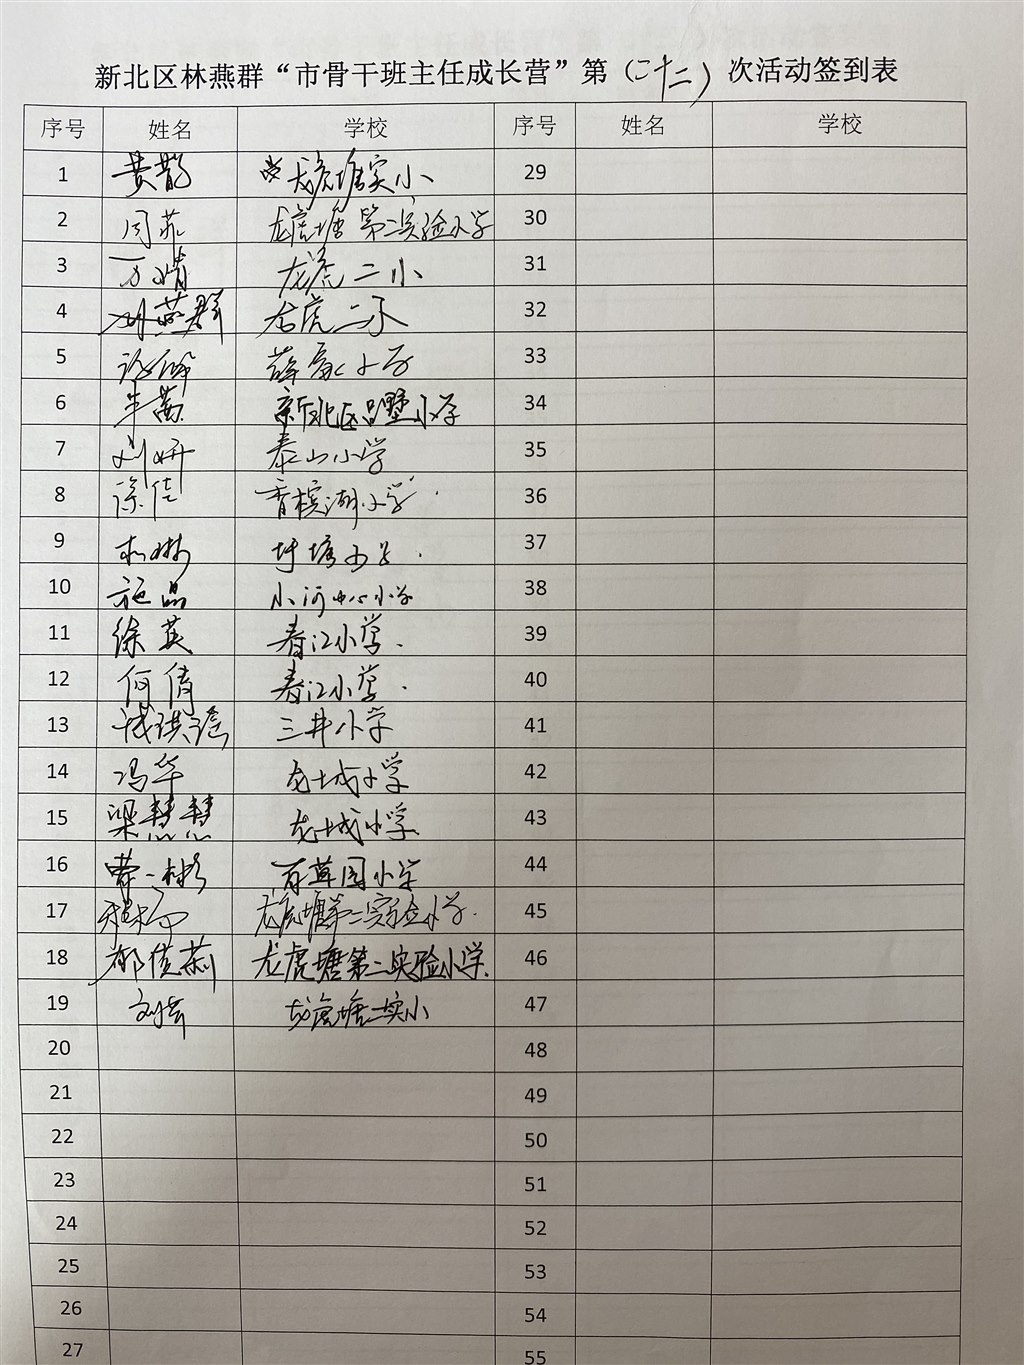 新北区林燕群“市骨干班主任成长营”第（二十二）次活动签到表
序号 姓名 学校 序号 姓名 学校
1 黄 龙虎塘实小 29
2 周菲 龙虎塘第二实验小学 30
3 万婧 龙虎二小 31
4 林燕群 龙虎二小 32
5 薛家小学 33
6 芈茜 新北区吕墅小学 34
7 刘妍 泰山小学 35
8 徐佳 香槟湖小学 36
9 圩塘小学 37
10 施晶 小河中心小学 38
11 徐英 春江小学 39
12 何倩 春江小学 40
13 三井小学 41
14 冯华 龙城小学 42
15 梁慧慧 龙城小学 43
16 一彬 百草园小学 44
17 龙虎塘第二实验小学 45
18 郝俊莉 龙虎塘第二实验小学 46
19 刘芸 龙虎塘二实小 47
20 48
21 49
22 50
23 51
24 52
25 53
26 54
27 55